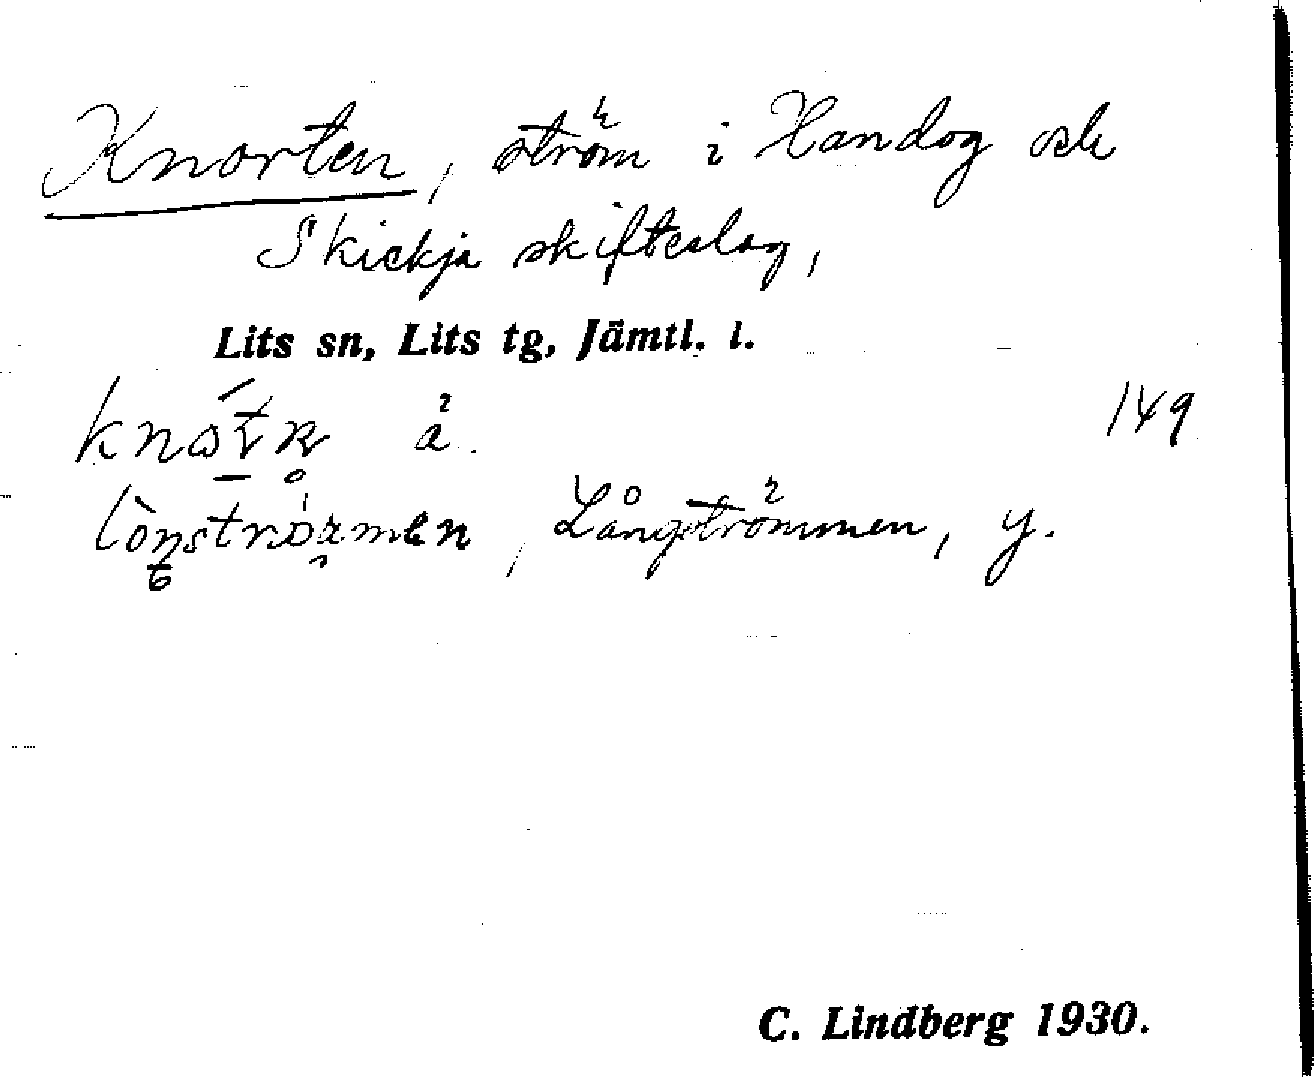 Knorten, ström i Handog och
Skickja skifteslag,
Lits sn, Lits tg, Jämtl. l.
ä. 149
Långströmmen, y.
C. Lindberg 1930.